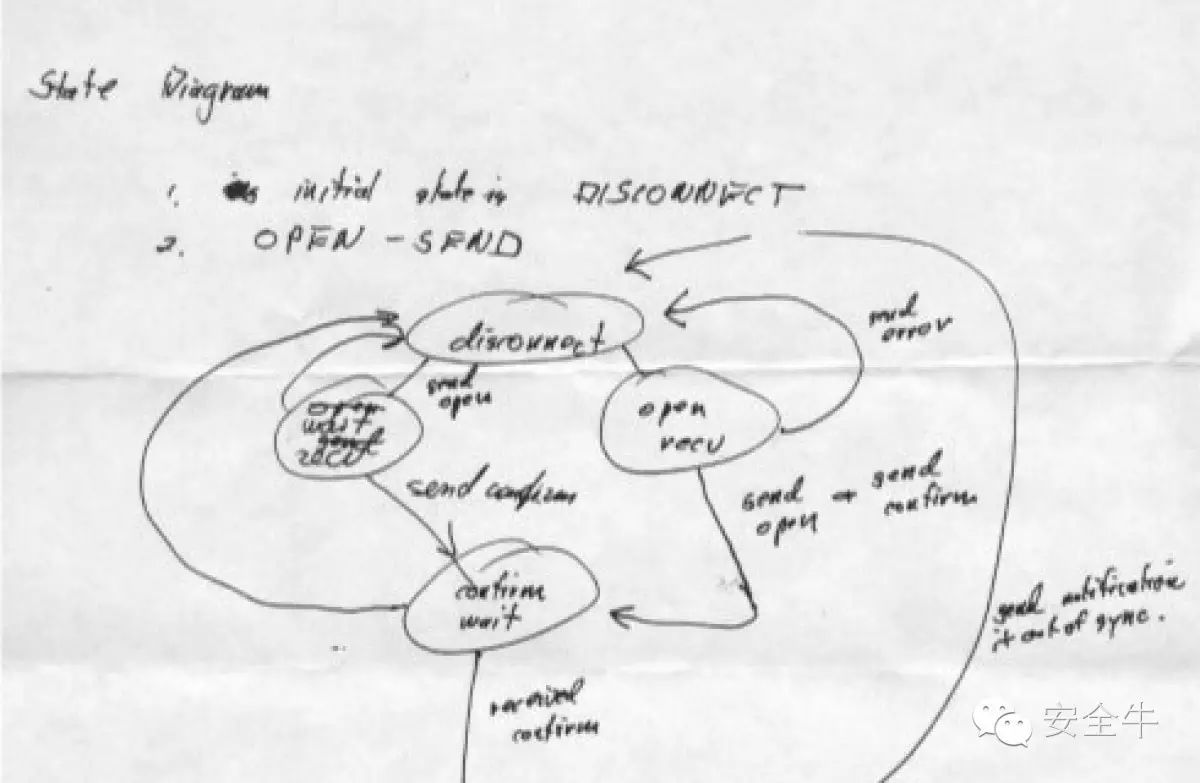 State Diagram
1. initial state is DISCONNECT
2. OPEN - SEND
disconnect
send
error
send
open
open
wait
recv
open
recv
send confirm
send
open
or send
confirm
confirm
wait
send notification
if out of sync.
received
confirm
安全牛